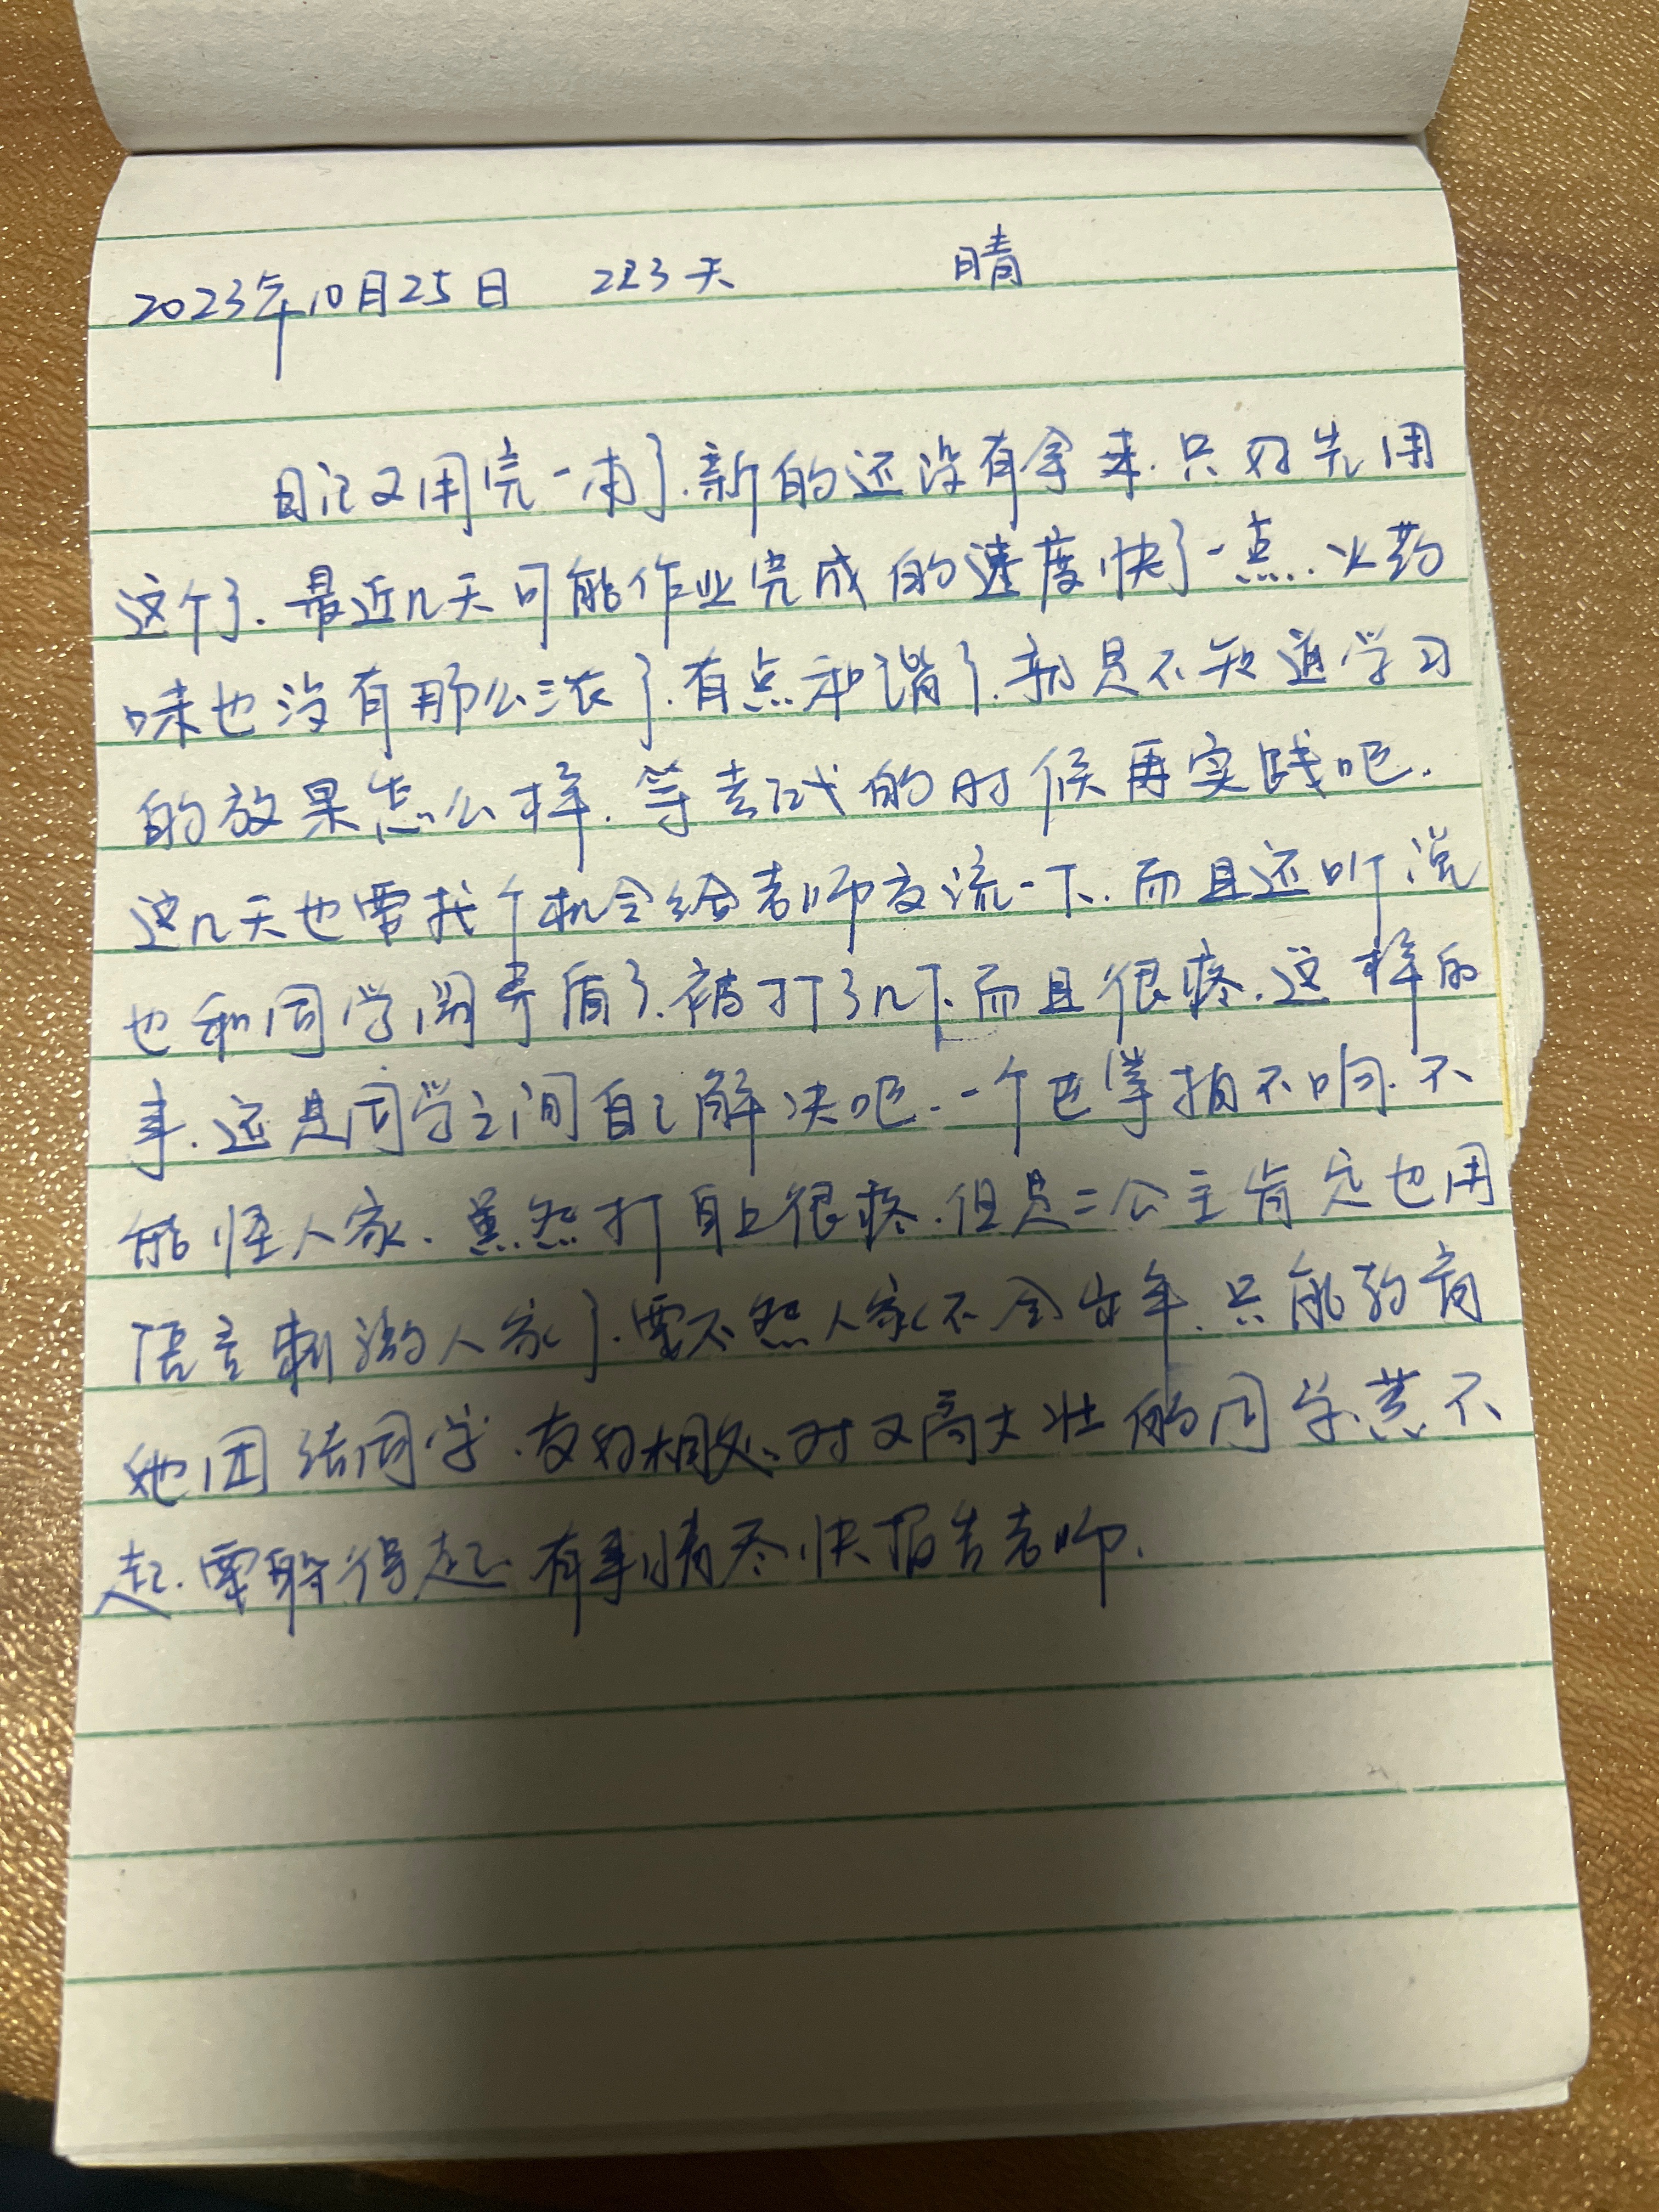 2023年10月25日 223天 晴
日记又用完一本了.新的还没有拿来.只好先用
这个了.最近几天可能作业完成的速度快了一点.火药
味也没有那么浓了.有点和谐了.就是不知道学习
的效果怎么样.等考试的时候再实践吧.
这几天也需找个机会给老师交流一下.而且还听说
也和同学闹矛盾了.被打了几下而且很疼.这样的
事.还是同学之间自己解决吧.一个巴掌拍不响.不
能怪人家.虽然打身上很疼.但是二公主肯定也用
语言刺激人家了.要不然人家不会出手.只能教育
她团结同学.友好相处.对又高大壮的同学惹不
起.要躲得起.有事情尽快报告老师.